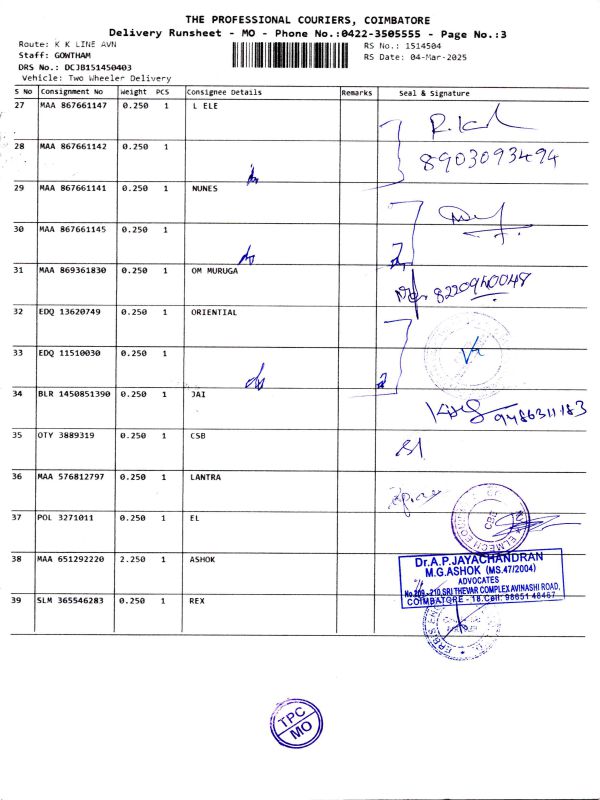 THE PROFESSIONAL COURIERS, COIMBATORE
Delivery Runsheet - MO - Phone No.:0422-3505555 - Page No.:3
Route: K K LINE AVN
RS No.: 1514504
Staff: GOWTHAM
RS Date: 04-Mar-2025
DRS No.: DCJB151450403
Vehicle: Two Wheeler Delivery
S No Consignment No Weight PCS Consignee Details Remarks Seal & Signature
27 MAA 867661147 0.250 1 L ELE
28 MAA 867661142 0.250 1 8903093494
29 MAA 867661141 0.250 1 NUNES
30 MAA 867661145 0.250 1
31 MAA 869361830 0.250 1 OM MURUGA
32 EDQ 13620749 0.250 1 ORIENTIAL
33 EDQ 11510030 0.250 1
34 BLR 1450851390 0.250 1 JAI 9486311183
35 OTY 3889319 0.250 1 CSB
36 MAA 576812797 0.250 1 LANTRA
37 POL 3271011 0.250 1 EL CBE
38 MAA 651292220 2.250 1 ASHOK
Dr.A.P.JAYACHANDRAN
M.G.ASHOK (MS.47/2004)
ADVOCATES
No.209-210,SRI THEVAR COMPLEX,AVINASHI ROAD,
COIMBATORE - 18.Cell: 98651 48467
39 SLM 365546283 0.250 1 REX
TPC
MO